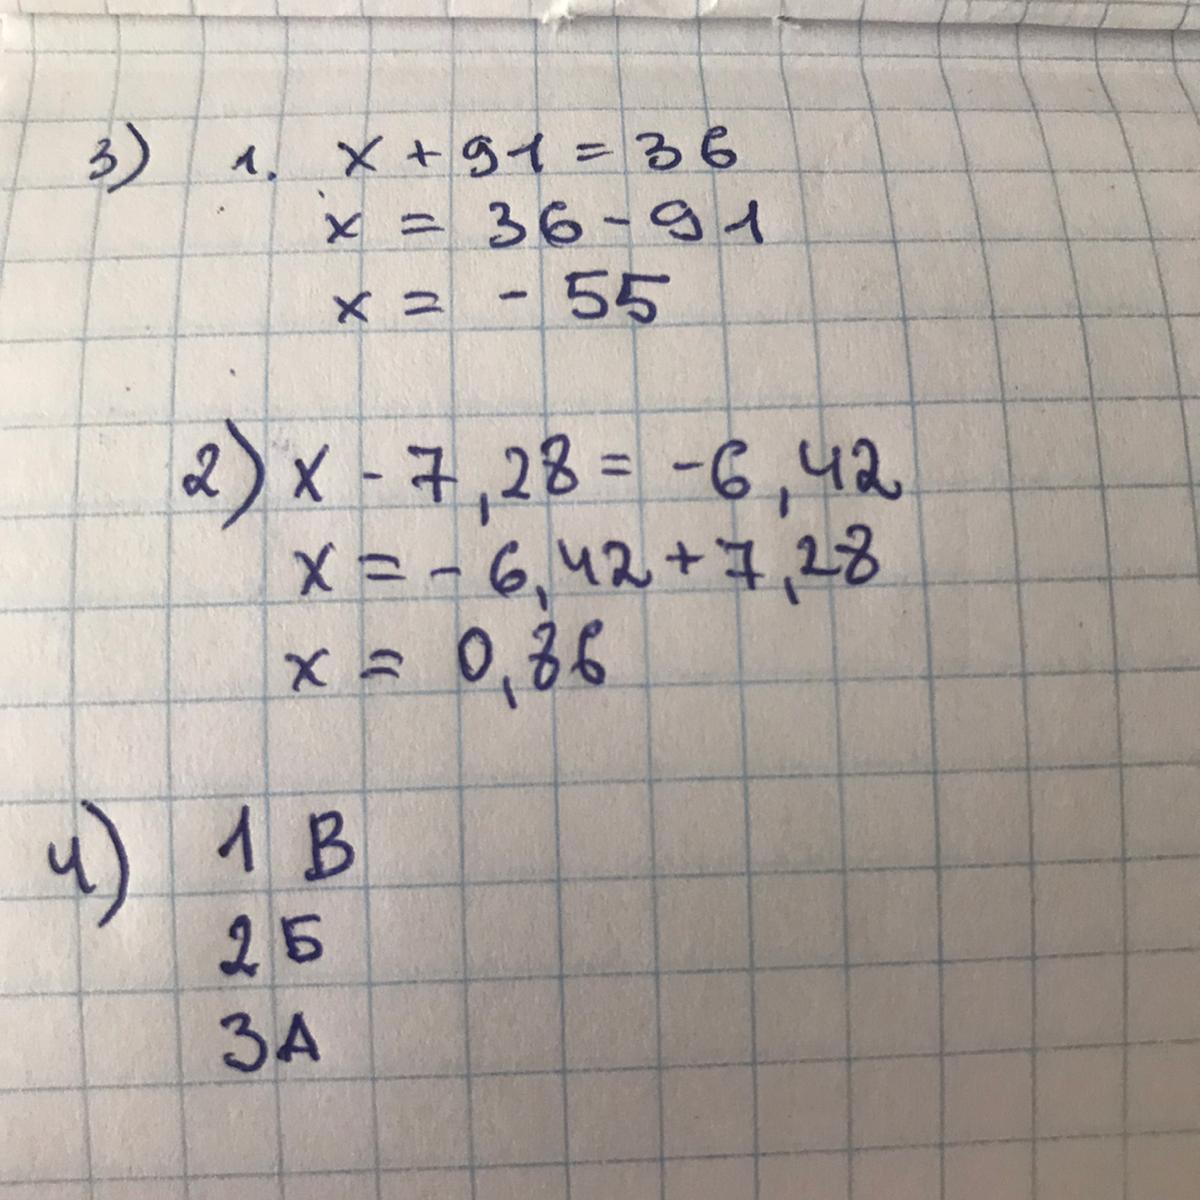 3) 1. x + 91 = 36
x = 36 - 91
x = - 55
2) x - 7,28 = -6,42
x = - 6,42 + 7,28
x = 0,86
4) 1 В
2 Б
3 А